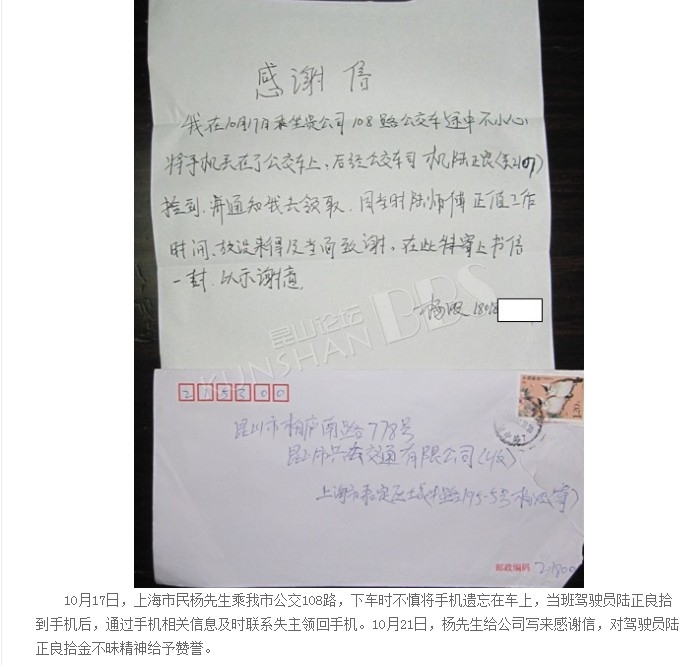 感谢信
我在10月17日乘坐贵公司108路公交车途中不小心
将手机丢在了公交车上，后经公交车司机陆正良
捡到.并通知我去领取.因当时陆师傅正值工作
时间、故没来得及当面致谢，在此特写上书信
一封.以示谢意.
杨
昆山论坛
KUNSHAN BBS
215300
1.20
昆山市柏庐南路778号
昆山市公交交通有限公司(收)
上海市嘉定区
邮政编码
10月17日，上海市民杨先生乘我市公交108路，下车时不慎将手机遗忘在车上，当班驾驶员陆正良拾
到手机后，通过手机相关信息及时联系失主领回手机。10月21日，杨先生给公司写来感谢信，对驾驶员陆
正良拾金不昧精神给予赞誉。